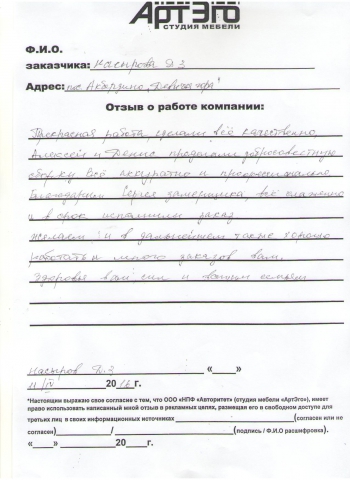 АртЭго
СТУДИЯ МЕБЕЛИ
Ф.И.О.
заказчика: Насырова Д.З
Адрес: пос Акбердино, "Девичья гора"
Отзыв о работе компании:
Прекрасная работа, сделали всё качественно,
Алексей и Денис проделали добросовестную
сборку всё аккуратно и профессионально.
Благодарим Сергея замерщика, всё слаженно
и в срок исполнили заказ
желаем и в дальнейшем также хорошо
работать и много заказов вам.
Здоровья вам сил и вашим семьям
Насыров Д.З «___»
11/IV 2016 г.
*Настоящим выражаю свое согласие с тем, что ООО «НПФ «Авторитет» (студия мебели «АртЭго»), имеет
право использовать написанный мной отзыв в рекламных целях, размещая его в свободном доступе для
третьих лиц в своих информационных источниках ____________(согласен или не
согласен)____________/____________(подпись / Ф.И.О расшифровка).
«___» ____________20____г.